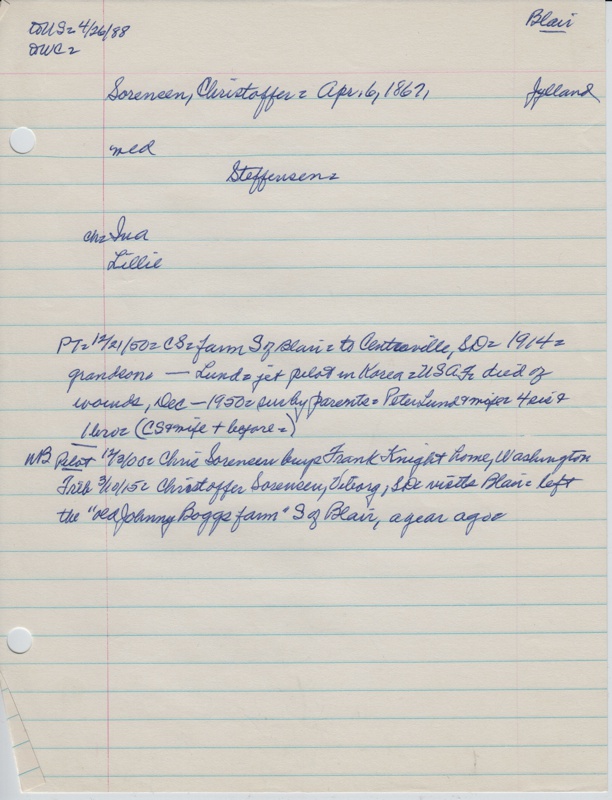 Blair
to US= 4/26/88
WC=
Sorensen, Christoffer= Apr. 6, 1867, Jylland
med
Steffensen=
ch= Ina
Lillie
PT= 12/21/50= CS= farm S of Blair= to Centraville, SD= 1914=
grandson= — Lund= jet pilot in Korea= USAF= died of
wounds, Dec — 1950= sur by parents= Peter Lund & wife= 4 sis &
1 bro= (CS & wife + before=)
NB Pilot 12/3/00= Chris Sorensen buys Frank Knight home, Washington
Trib 3/10/15= Christoffer Sorensen, Viborg, SD= visits Blair= left
the "old Johnny Boggs farm" S of Blair, a year ago=